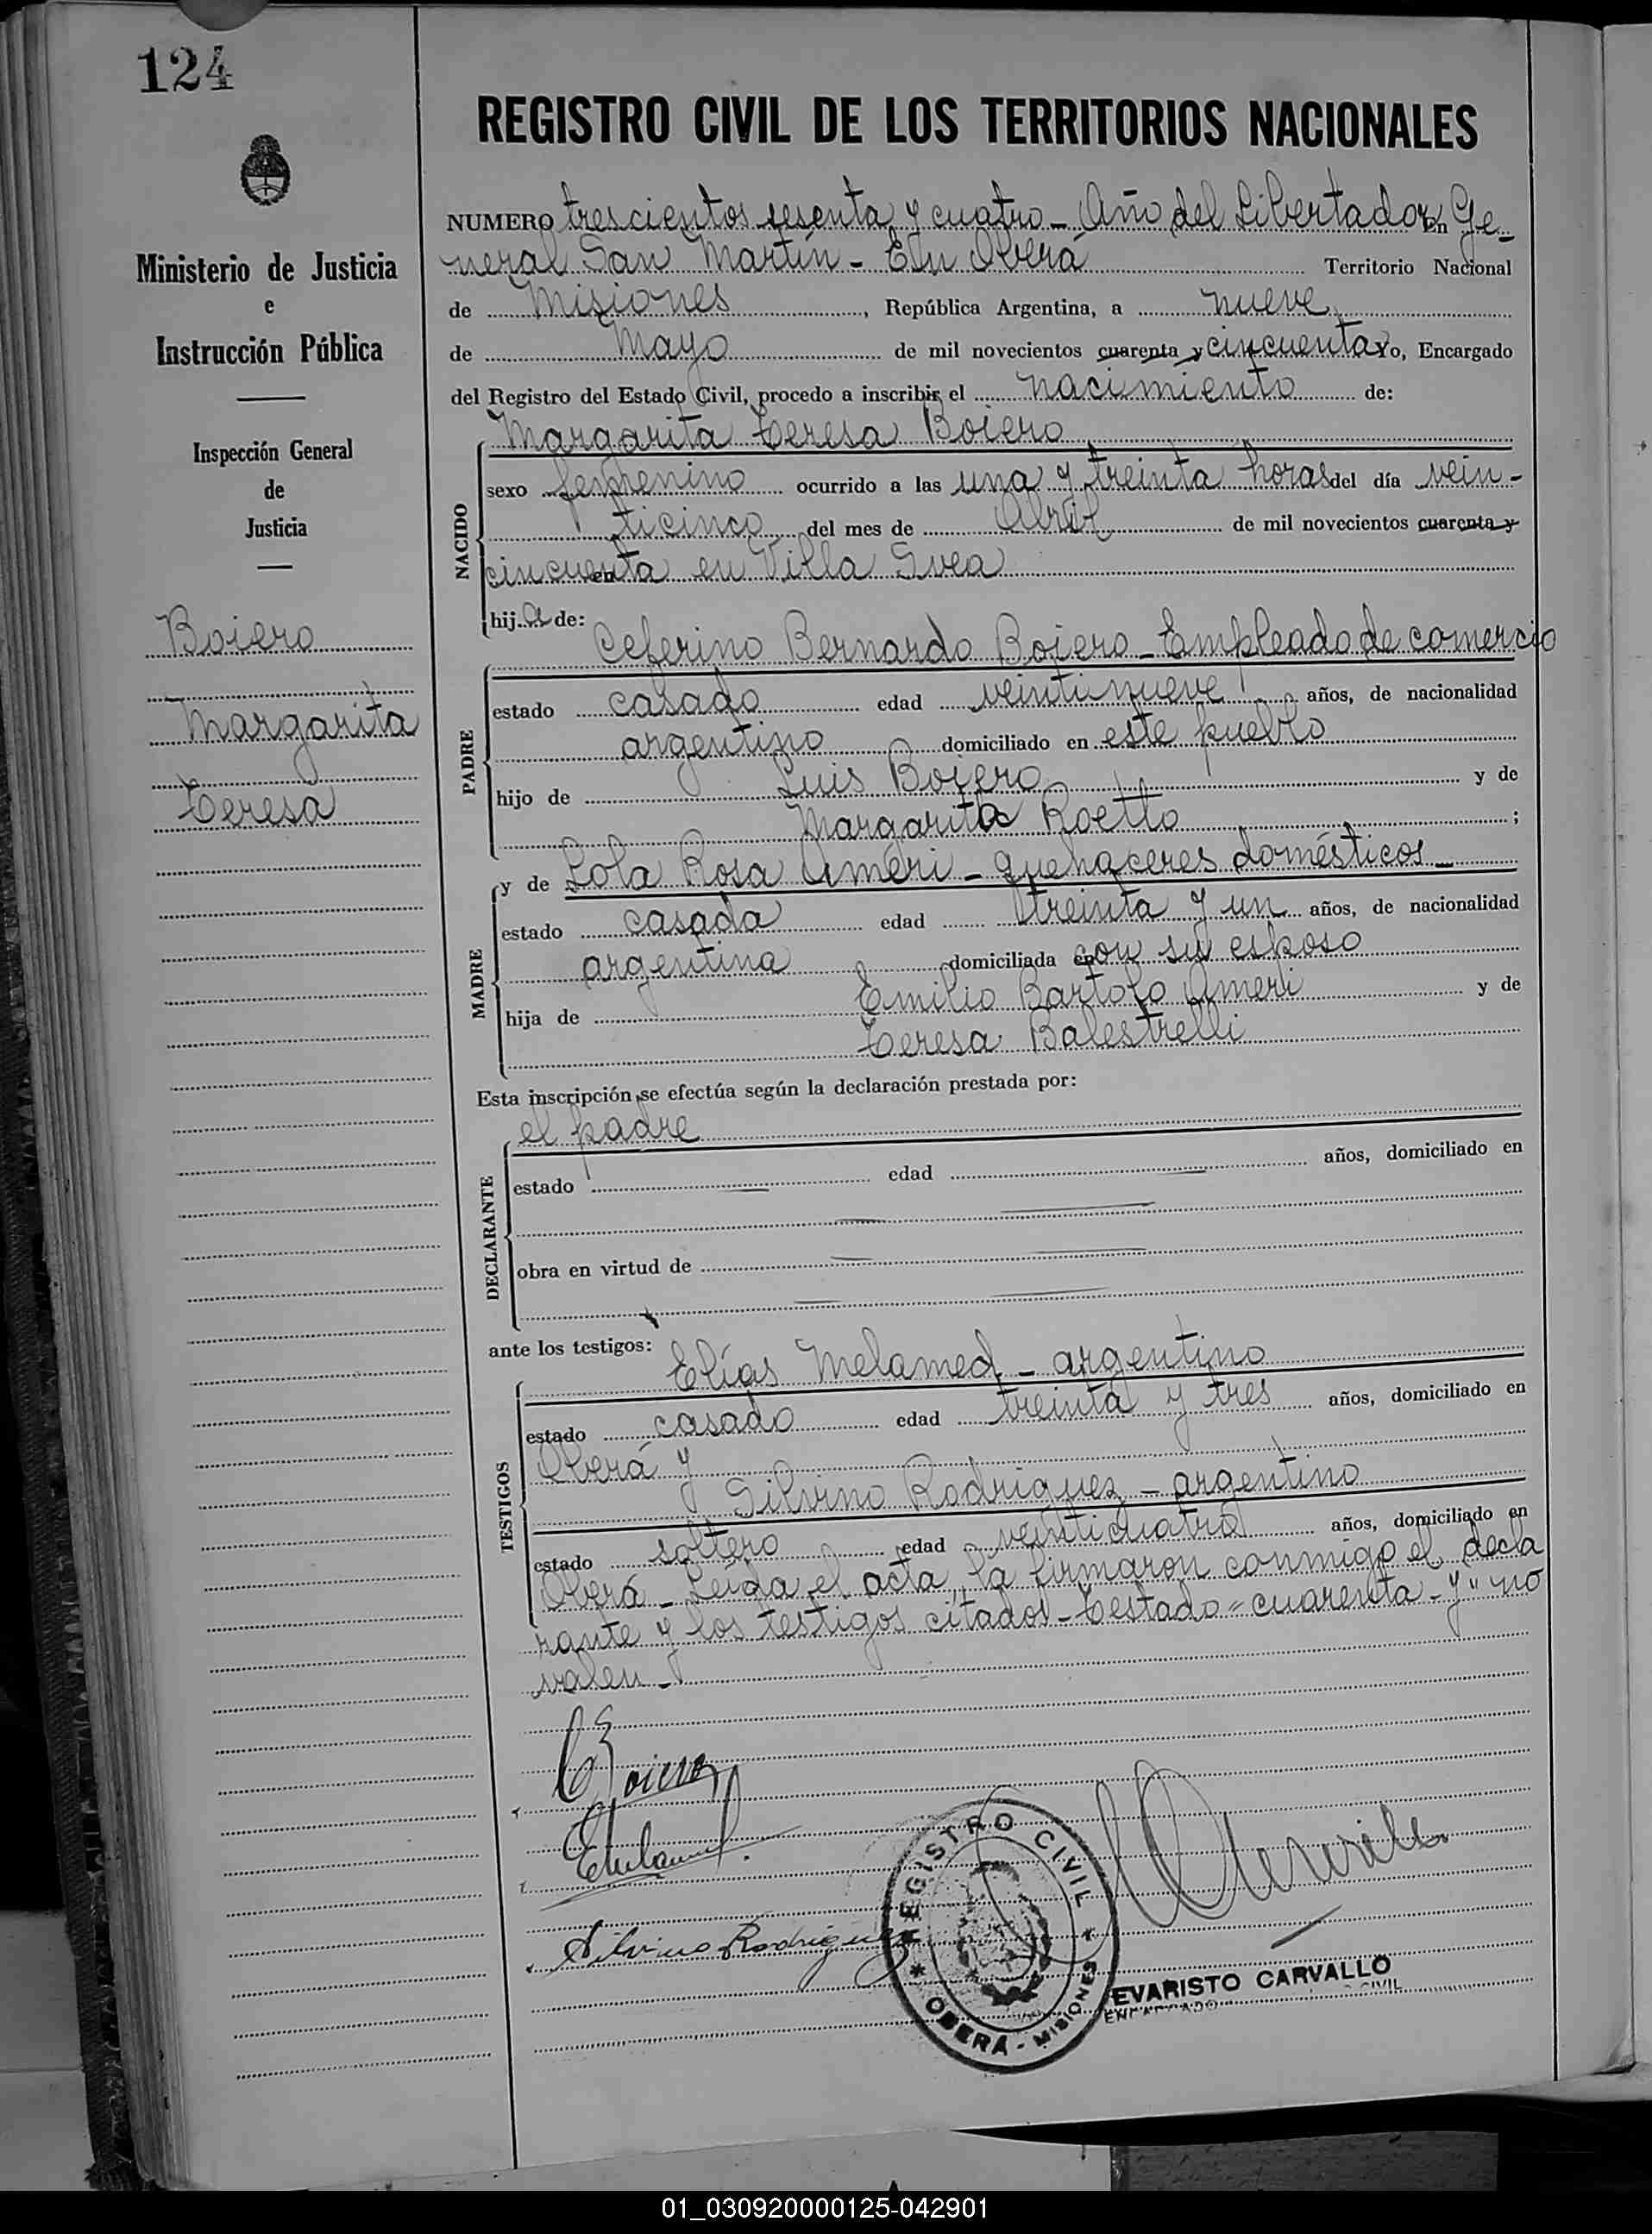 124
REGISTRO CIVIL DE LOS TERRITORIOS NACIONALES
Ministerio de Justicia
e
Instrucción Pública
Inspección General
de
Justicia
Boiero
Margarita
Teresa
NUMERO trescientos sesenta y cuatro - Año del Libertador En Ge-
neral San Martín - En Oberá Territorio Nacional
de Misiones, República Argentina, a nueve
de Mayo de mil novecientos cuarenta y cincuenta Yo, Encargado
del Registro del Estado Civil, procedo a inscribir el nacimiento de:
Margarita Teresa Boiero
NACIDO
sexo femenino ocurrido a las una y treinta horas del día vein-
ticinco del mes de Abril de mil novecientos cuarenta y
cincuenta en en Villa Svea
hija de:
Ceferino Bernardo Boiero - Empleado de comercio
PADRE
estado casado edad veintinueve años, de nacionalidad
argentino domiciliado en este pueblo
hijo de Luis Boiero y de
Margarita Roetto ;
y de Lola Rosa Améri - quehaceres domésticos -
MADRE
estado casada edad treinta y un años, de nacionalidad
argentina domiciliada en con su esposo
hija de Emilio Bartolo Ameri y de
Teresa Balestrelli
Esta inscripción se efectúa según la declaración prestada por:
el padre
DECLARANTE
estado edad años, domiciliado en
obra en virtud de
ante los testigos:
Elías Melamed - argentino
TESTIGOS
estado casado edad treinta y tres años, domiciliado en
Oberá y
Silvino Rodriguez - argentino
estado soltero edad veinticuatro años, domiciliado en
Oberá - Leída el acta, la firmaron conmigo el decla
rante y los testigos citados - Testado "cuarenta - y" no
valen -
CBoiero
EMelamed
Silvino Rodriguez
REGISTRO CIVIL
* OBERÁ - MISIONES *
EVARISTO CARVALLO
ENCARGADO CIVIL
01_030920000125-042901